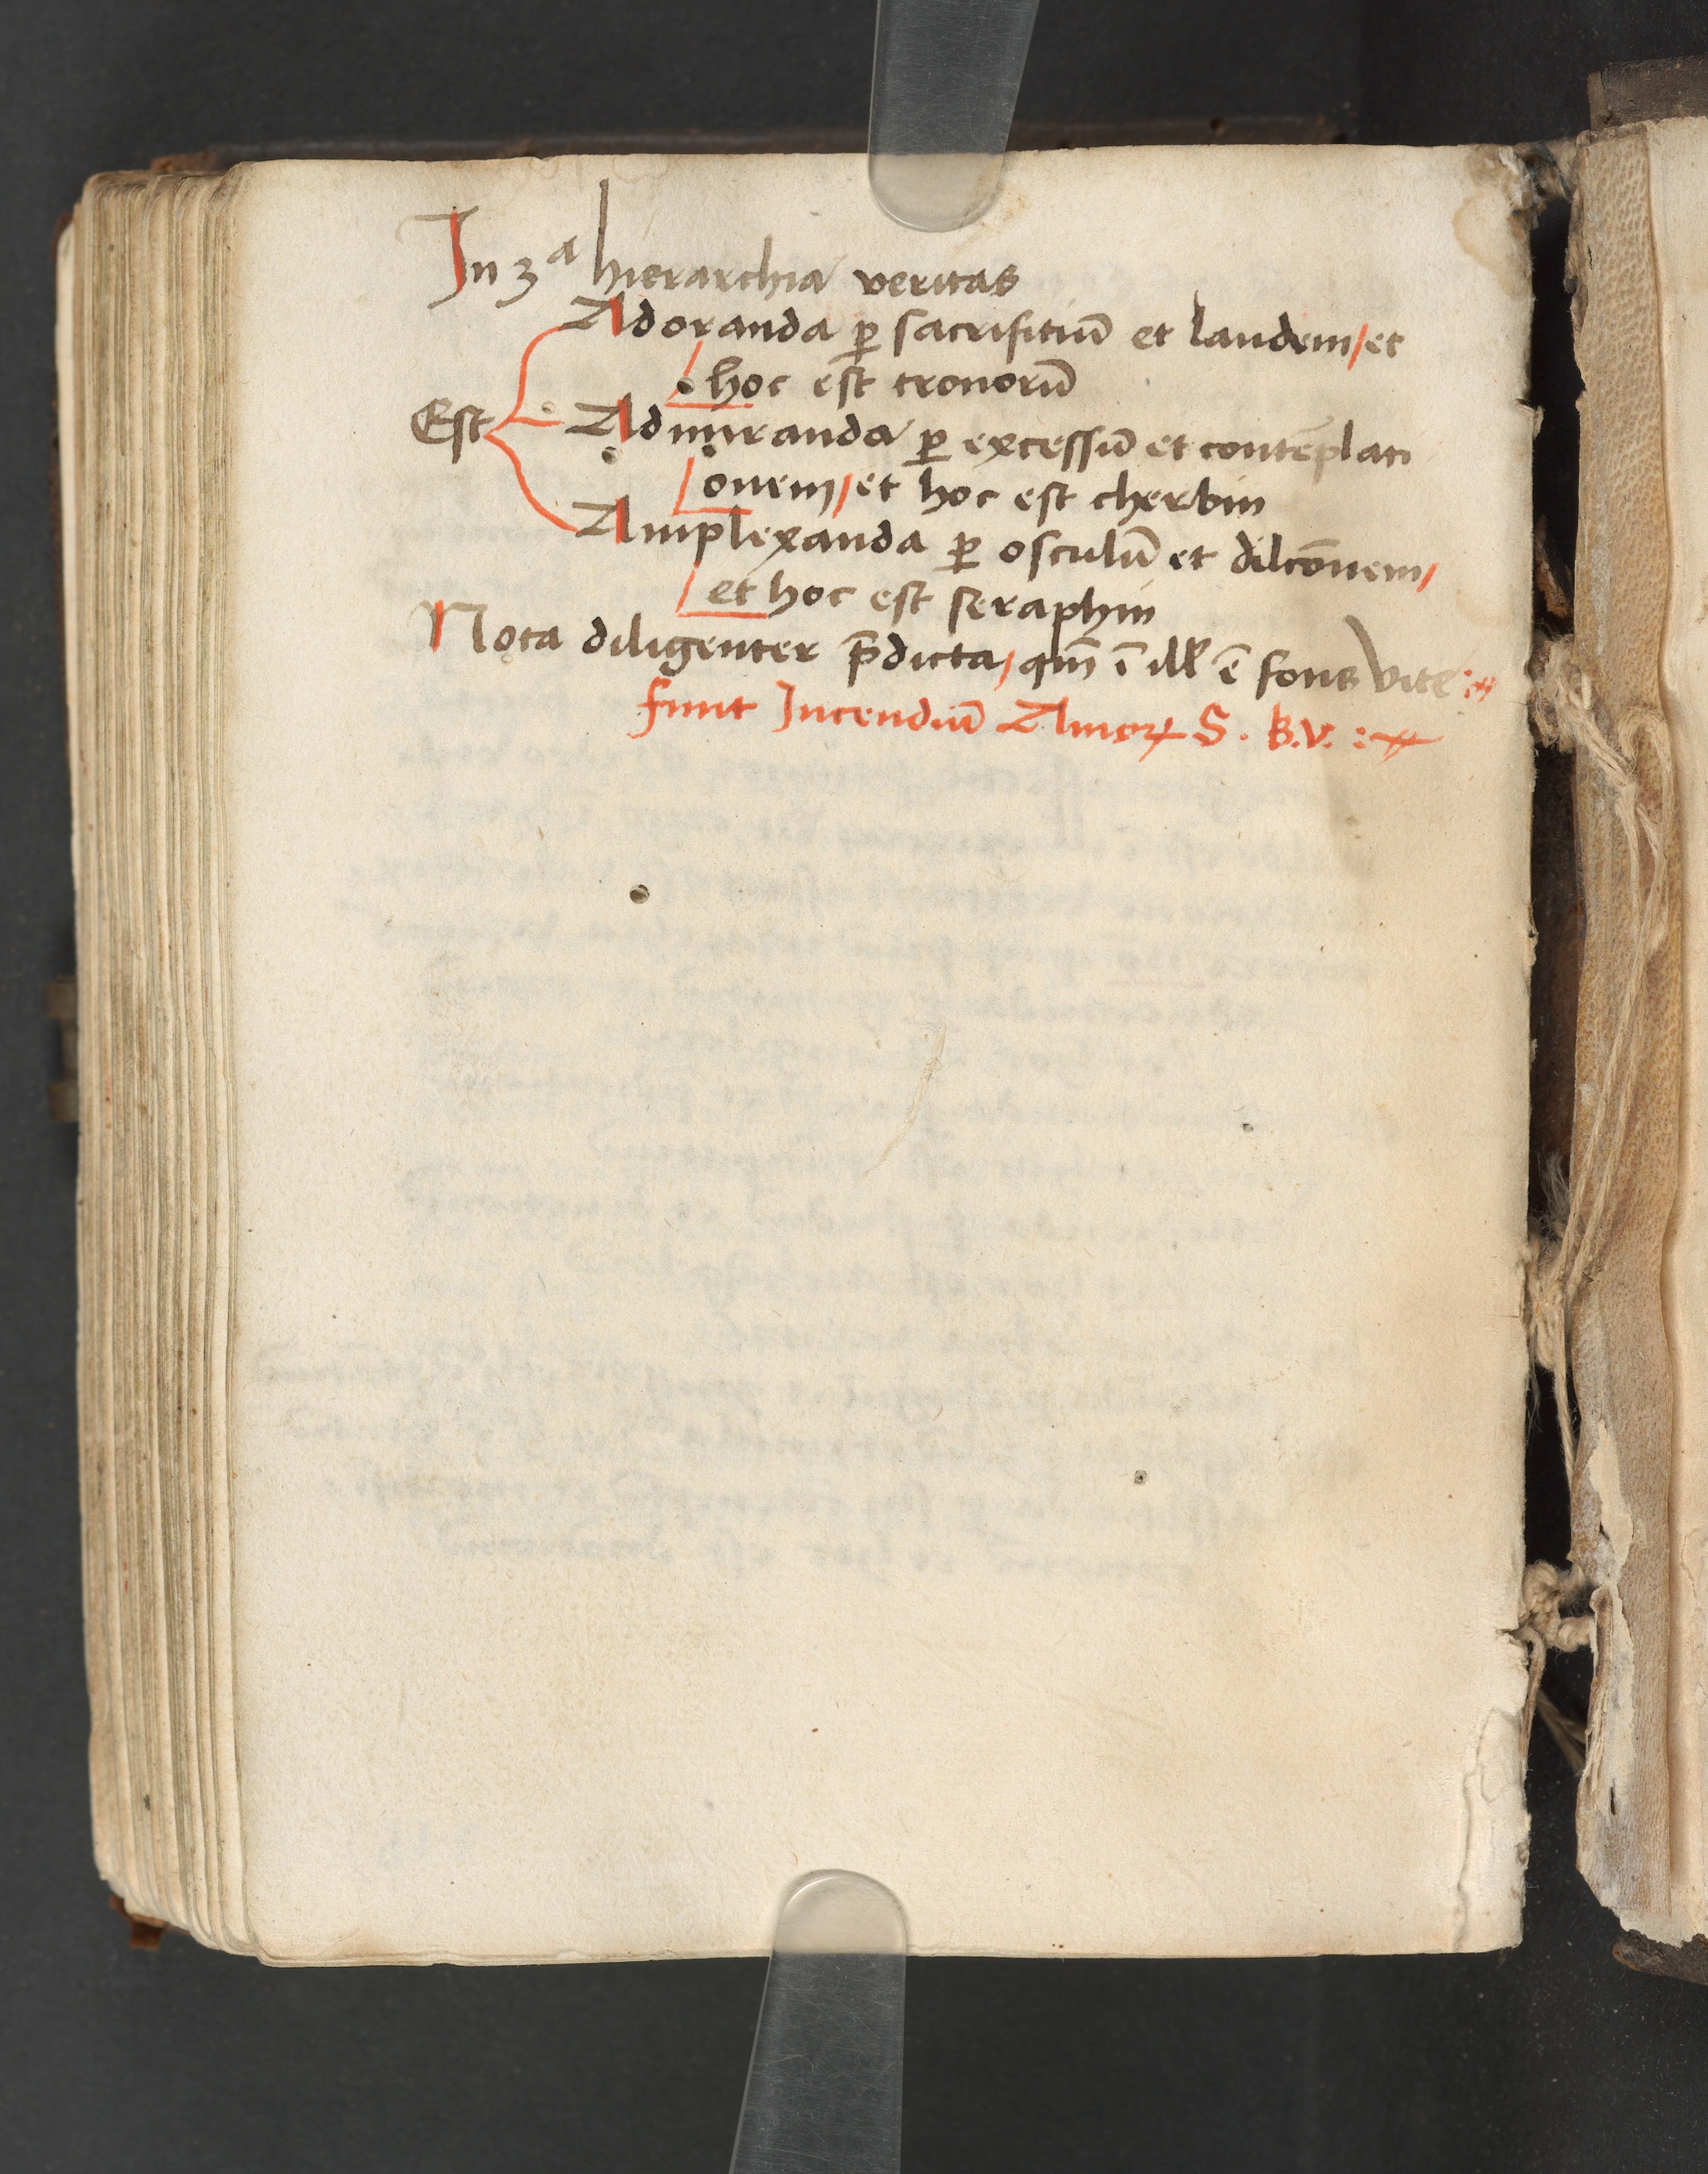 In 3ª hierarchia veritas
Adoranda ꝑ sacrifitiū et laudem/et
hoc est tronorū
Est Admiranda ꝑ excessū et contēplati
onem/et hoc est cherbin
Amplexanda ꝑ osculū et dilcōnem/
et hoc est seraphin
Nota diligenter p̄dicta/qm̄ ī ill' ē fons vite:
finit Incendiū Amoꝝ S. B.V. :